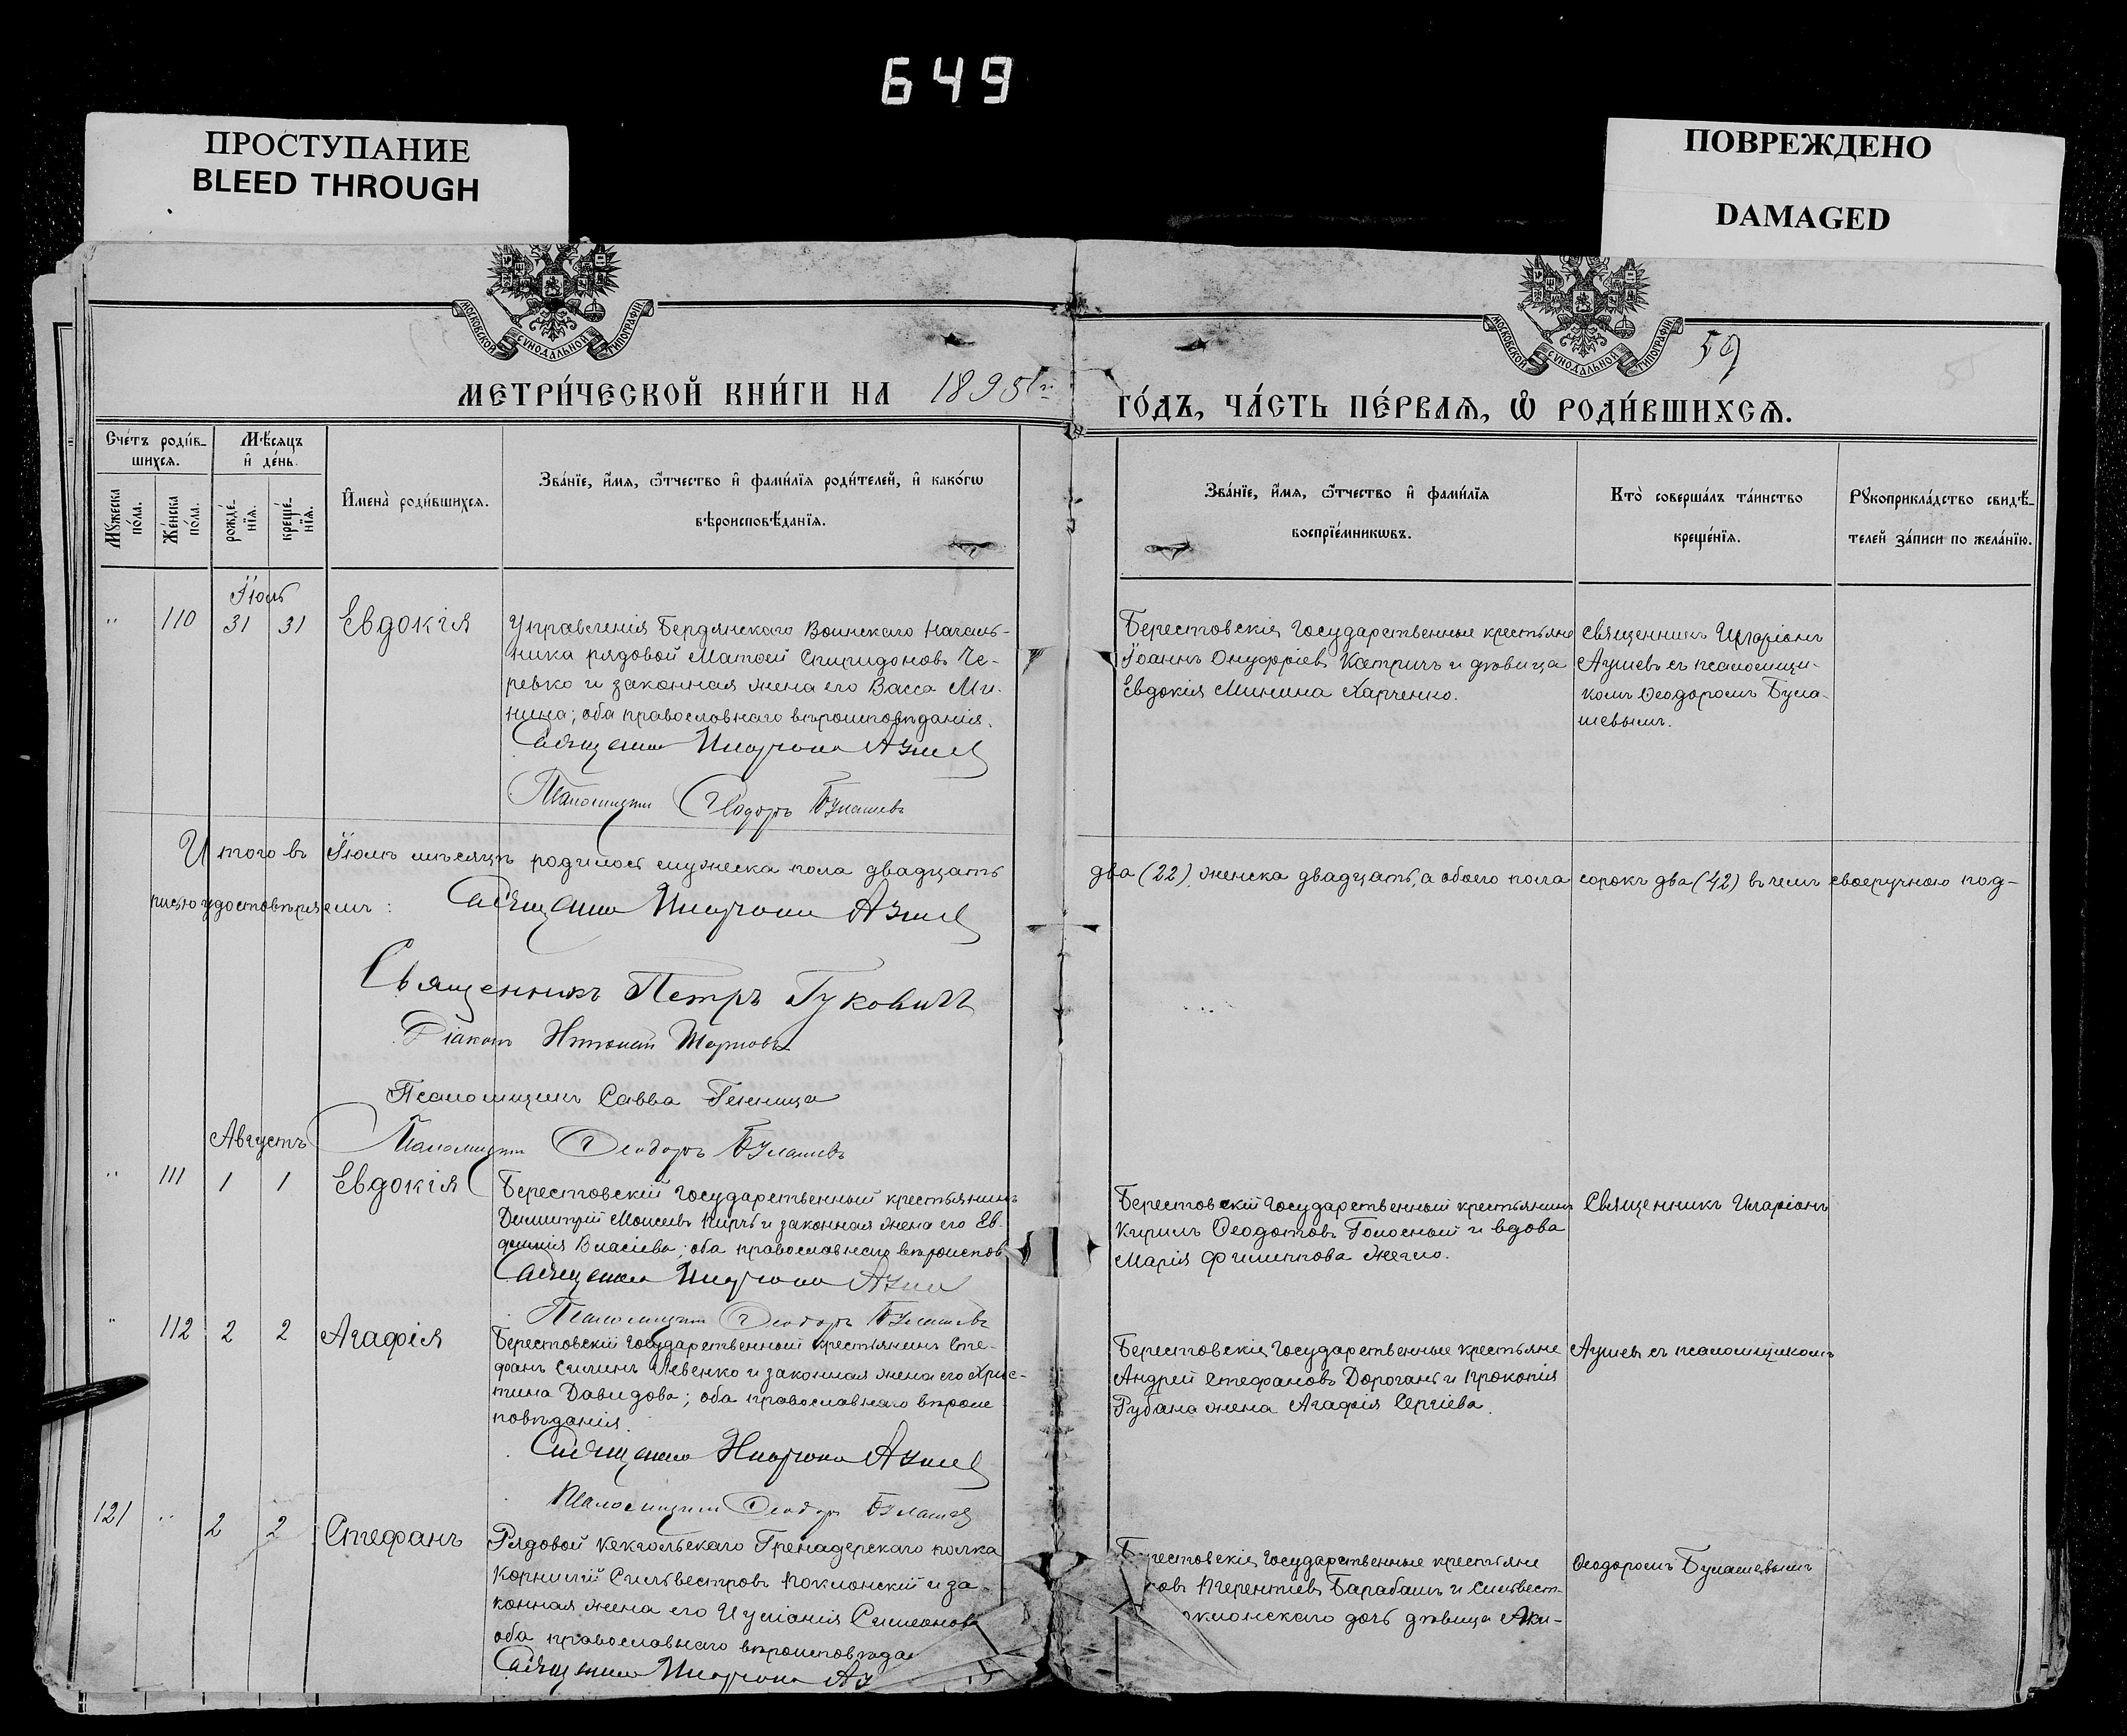 649
ПРОСТУПАНИЕ
BLEED THROUGH
ПОВРЕЖДЕНО
DAMAGED
МОСКОВСКОЙ СѴНОДАЛЬНОЙ ТИПОГРАФІИ
МОСКОВСКОЙ СѴНОДАЛЬНОЙ ТИПОГРАФІИ
59
МЕТРИ́ЧЕСКОЙ КНИ́ГИ НА 1895 ГО́ДЪ, ЧА́СТЬ ПЕ́РВАѦ, Ѡ҆ РОДИ́ВШИХСѦ.
Сче́тъ роди́в-
шихсѧ.
Мѣ́сѧцъ
и҆ де́нь.
Мꙋ́жеска
по́ла.
Же́нска
по́ла.
рожде́-
нїѧ.
креще́-
нїѧ.
И҆мена̀ роди́вшихсѧ.
Зва́нїе, и҆́мѧ, ѻ҆́тчество и҆ фами́лїѧ роди́телей, и҆ како́гѡ
вѣроисповѣ́данїѧ.
Зва́нїе, и҆́мѧ, ѻ҆́тчество и҆ фами́лїѧ
воспрїе́мникѡвъ.
Кто̀ соверша́лъ та́инство
креще́нїѧ.
Рꙋкоприкла́дство свидѣ́-
телей за́писи по жела́нїю.
Іюль
" 110 31 31 Евдокія
Управленія Бердянскаго Воинскаго Началь-
ника рядовой Матѳей Спиридоновъ Че-
ревко и законная жена его Васса Ми-
нина; оба православнаго вѣроисповѣданія.
Священникъ Иларіонъ Аушевъ
Псаломщикъ Ѳеодоръ Булашевъ
Берестовскіе Государственные крестьяне
Іоаннъ Онуфріевъ Катричъ и дѣвица
Евдокія Минина Харченко.
Священникъ Иларіонъ
Аушевъ съ псаломщи-
комъ Ѳеодоромъ Була-
шевымъ.
Итого въ Іюлѣ мѣсяцѣ родилось мужеска пола двадцать два (22), женска двадцать, а обоего пола сорокъ два (42) въ чемъ своеручною под-
писью удостовѣряемъ: Священникъ Иларіонъ Аушевъ
Священникъ Петръ Гуковичъ
Діаконъ
Псаломщикъ Савва
Псаломщикъ Ѳеодоръ Булашевъ
Августъ
" 111 1 1 Евдокія
Берестовскій Государственный крестьянинъ
Димитрій Моисеевъ Кирчъ и законная жена его Ев-
фимія Власіева; оба православнаго вѣроиспов
Священникъ Иларіонъ Ауше
Псаломщикъ Ѳеодоръ Булашевъ
Берестовскій Государственный крестьянинъ
Кирилъ Ѳеодотовъ Голосный и вдова
Марія Филиппова
Священникъ Иларіонъ
" 112 2 2 Агафія
Берестовскій Государственный крестьянинъ Сте-
фанъ Силинъ Левенко и законная жена его Хрис-
тина Давидова; оба православнаго вѣроис
повѣданія.
Священникъ Иларіонъ Аушевъ
Псаломщикъ Ѳеодоръ Булашевъ
Берестовскіе Государственные крестьяне
Андрей Стефановъ Дороганъ и Прокопія
Рубана жена Агафія Сергіева.
Аушевъ съ псаломщикомъ
121 " 2 2 Стефанъ
Рядовой Кексгольскаго Гренадерскаго полка
Корнилій Сильвестровъ Поклонскій и за-
конная жена его Иуліанія Симеонова
оба православнаго вѣроисповѣда
Священникъ Иларіонъ Ау
Берестовскіе Государственные крестьяне
овъ Терентіевъ Барабашъ и Сильвест-
оклонскаго дочь дѣвица Аки-
Ѳеодоромъ Булашевымъ